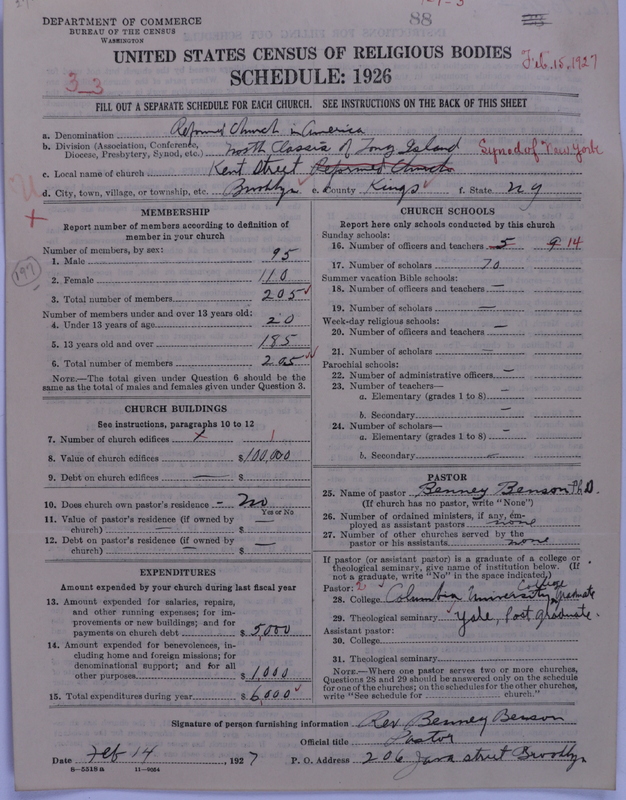 DEPARTMENT OF COMMERCE
BUREAU OF THE CENSUS
WASHINGTON
88
UNITED STATES CENSUS OF RELIGIOUS BODIES
Feb. 15, 1927
SCHEDULE: 1926
3_3
FILL OUT A SEPARATE SCHEDULE FOR EACH CHURCH. SEE INSTRUCTIONS ON THE BACK OF THIS SHEET
a. Denomination Reformed Church in America
b. Division (Association, Conference, Diocese, Presbytery, Synod, etc.) North Classis of Long Island Synod of New York
c. Local name of church Kent Street Reformed Church
d. City, town, village, or township, etc. Brooklyn e. County Kings f. State N Y
197
MEMBERSHIP
Report number of members according to definition of
member in your church
Number of members, by sex:
1. Male 95
2. Female 110
3. Total number of members 205
Number of members under and over 13 years old:
4. Under 13 years of age 20
5. 13 years old and over 185
6. Total number of members 205
NOTE.—The total given under Question 6 should be the
same as the total of males and females given under Question 3.
CHURCH BUILDINGS
See instructions, paragraphs 10 to 12
7. Number of church edifices x 1
8. Value of church edifices $100,000
9. Debt on church edifices — $
10. Does church own pastor's residence - No
Yes or No
11. Value of pastor's residence (if owned by
church) — $ —
12. Debt on pastor's residence (if owned by
church) — $ —
EXPENDITURES
Amount expended by your church during last fiscal year
13. Amount expended for salaries, repairs,
and other running expenses; for im-
provements or new buildings; and for
payments on church debt $ 5,000
14. Amount expended for benevolences, in-
cluding home and foreign missions; for
denominational support; and for all
other purposes $ 1000
15. Total expenditures during year $ 6,000
CHURCH SCHOOLS
Report here only schools conducted by this church
Sunday schools:
16. Number of officers and teachers 5 9 14
17. Number of scholars 70
Summer vacation Bible schools:
18. Number of officers and teachers —
19. Number of scholars —
Week-day religious schools:
20. Number of officers and teachers —
21. Number of scholars —
Parochial schools:
22. Number of administrative officers —
23. Number of teachers—
a. Elementary (grades 1 to 8) —
b. Secondary —
24. Number of scholars—
a. Elementary (grades 1 to 8) —
b. Secondary —
PASTOR
25. Name of pastor Benney Benson Ph.D.
(If church has no pastor, write "None")
26. Number of ordained ministers, if any, em-
ployed as assistant pastors none
27. Number of other churches served by the
pastor or his assistants none
If pastor (or assistant pastor) is a graduate of a college or
theological seminary, give name of institution below. (If
not a graduate, write "No" in the space indicated.)
Pastor: 2
28. College Columbia University College graduate
29. Theological seminary Yale, Post graduate.
Assistant pastor:
30. College
31. Theological seminary
NOTE.—Where one pastor serves two or more churches,
Questions 28 and 29 should be answered only on the schedule
for one of the churches; on the schedules for the other churches,
write "See schedule for church."
Signature of person furnishing information Rev Benney Benson
Official title Pastor
Date Feb 14, 1927 P. O. Address 206 Java street Brooklyn
8—5518a 11—9054